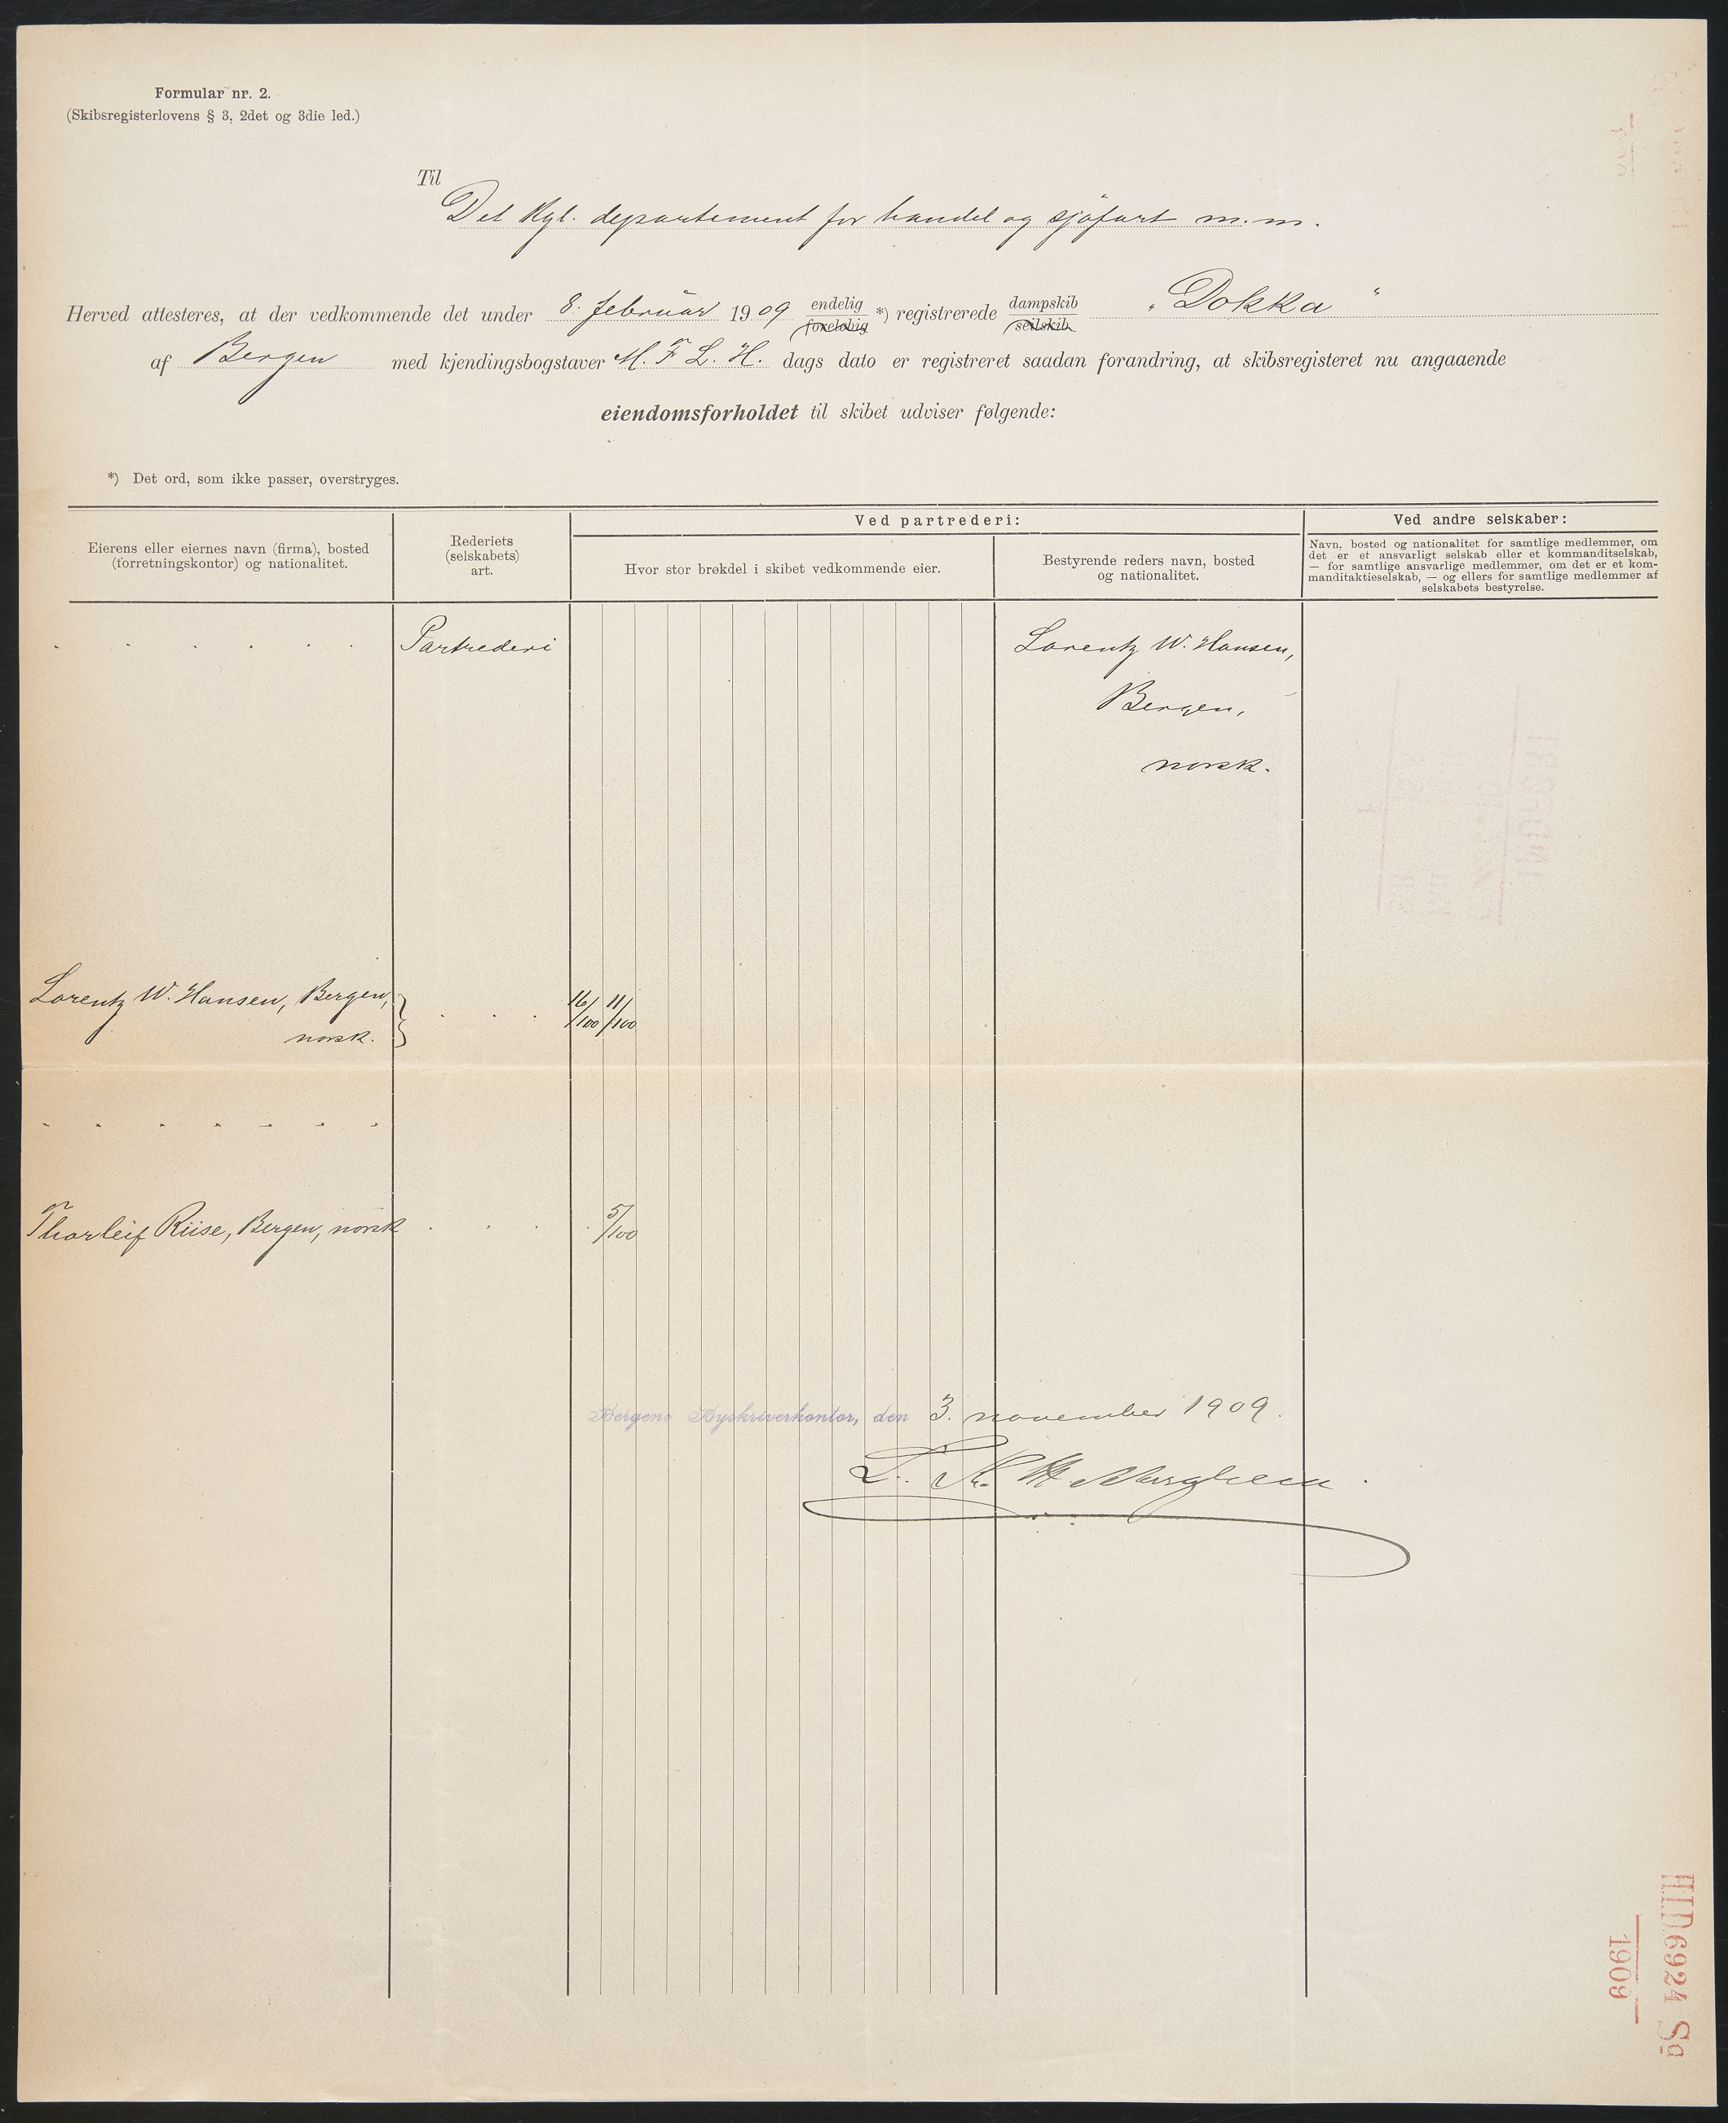 Formular nr. 2.
(Skibsregisterlovens § 3, 2det og 3die led.)
Til
Det Kgl. departement for handel og sjøfart m. m.
Herved attesteres, at der vedkommende det under 8. februar 1909 endelig *) registrerede dampskib "Dokka"
foreløbig seilskib
af Bergen med kjendingsbogstaver M. F. L. H. dags dato er registreret saadan forandring, at skibsregisteret nu angaaende
eiendomsforholdet til skibet udviser følgende:
*) Det ord, som ikke passer, overstryges.
Eierens eller eiernes navn (firma), bosted
(forretningskontor) og nationalitet.
Rederiets
(selskabets)
art.
Ved partrederi:
Hvor stor brøkdel i skibet vedkommende eier.
Bestyrende reders navn, bosted
og nationalitet.
Ved andre selskaber:
Navn, bosted og nationalitet for samtlige medlemmer, om
det er et ansvarligt selskab eller et kommanditselskab,
— for samtlige ansvarlige medlemmer, om det er et kom-
manditaktieselskab, — og ellers for samtlige medlemmer af
selskabets bestyrelse.
. . . . . . Partrederi Lorentz W. Hansen,
Bergen,
norsk.
Lorentz W. Hansen, Bergen, } . . . 16/100 11/100
norsk.
. . . . . . .
Thorleif Riise, Bergen, norsk . . . . 5/100
Bergens Byskriverkontor, den 3. november 1909.
HID6924 Sø
1909